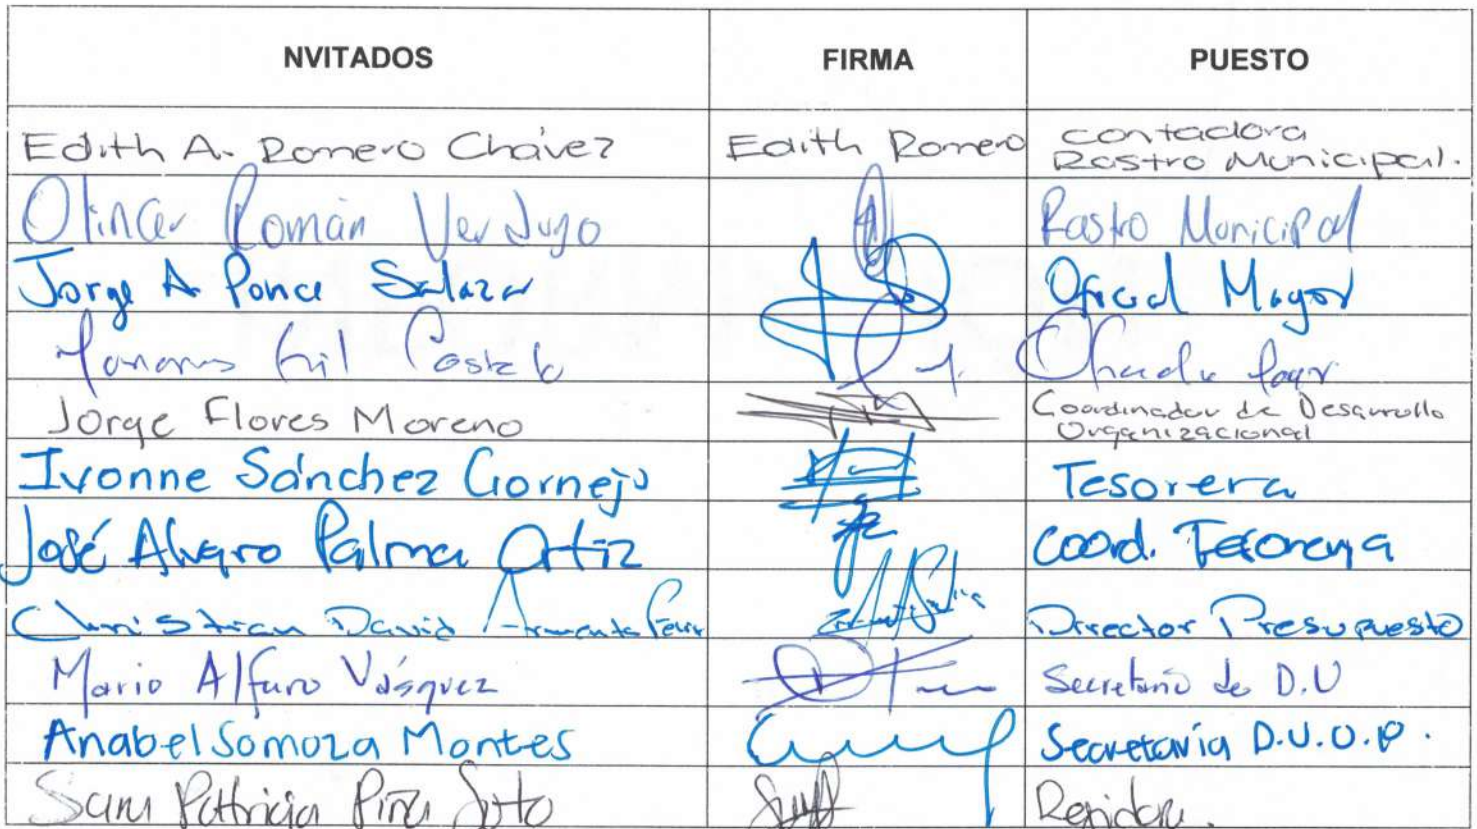 NVITADOS FIRMA PUESTO
Edith A. Romero Chávez Edith Romero contadora
Rastro Municipal.
Román Verdugo Rastro Municipal
Jorge A Ponce Salazar Oficial Mayor
Gil
Jorge Flores Moreno Coordinador de Desarrollo
Organizacional
Ivonne Sánchez Cornejo Tesorera
José Alvaro Palma Ortiz Coord. Tesoreria
Christian David Armenta Director Presupuesto
Mario Alfaro Vásquez Secretario de D.U
Anabel Somoza Montes Secretaría D.U.O.P.
Sara Patricia Piña Soto Regidora.